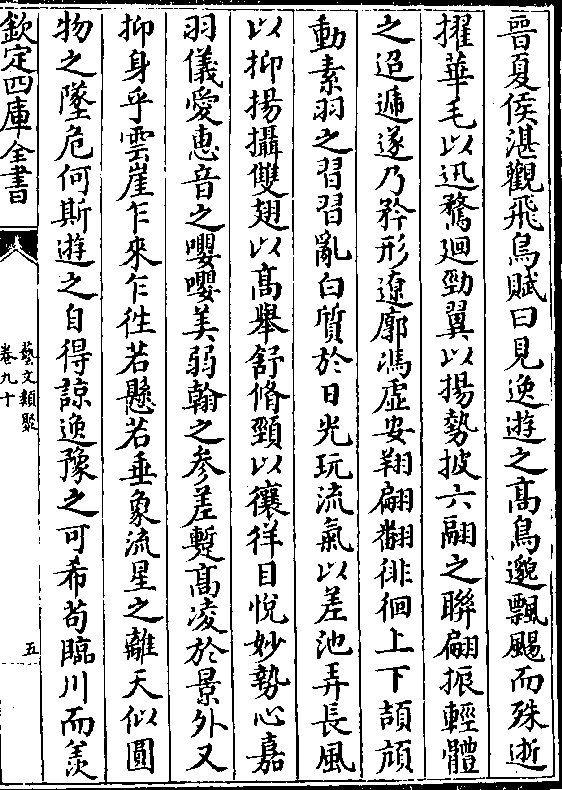 晉夏侯湛觀飛鳥賦曰見逸遊之髙鳥邈飄颺而殊逝
擢華毛以迅騖廻勁翼以揚勢披六翮之聯翩振輕體
之迢遞遂乃矜形遼廓馮虚安翔翩翻徘徊上下頡頏
動素羽之習習亂白質於日光玩流氣以差池弄長風
以抑揚攝雙翅以髙舉舒脩頸以儴徉目悦妙勢心嘉
羽儀愛惠音之嚶嚶美弱翰之参差蹔髙凌於景外又
抑身乎雲崖乍來乍徃若懸若垂象流星之離天似圓
物之墜危何斯遊之自得諒逸豫之可希苟臨川而羡
欽定四庫全書
藝文類聚
卷九十
五